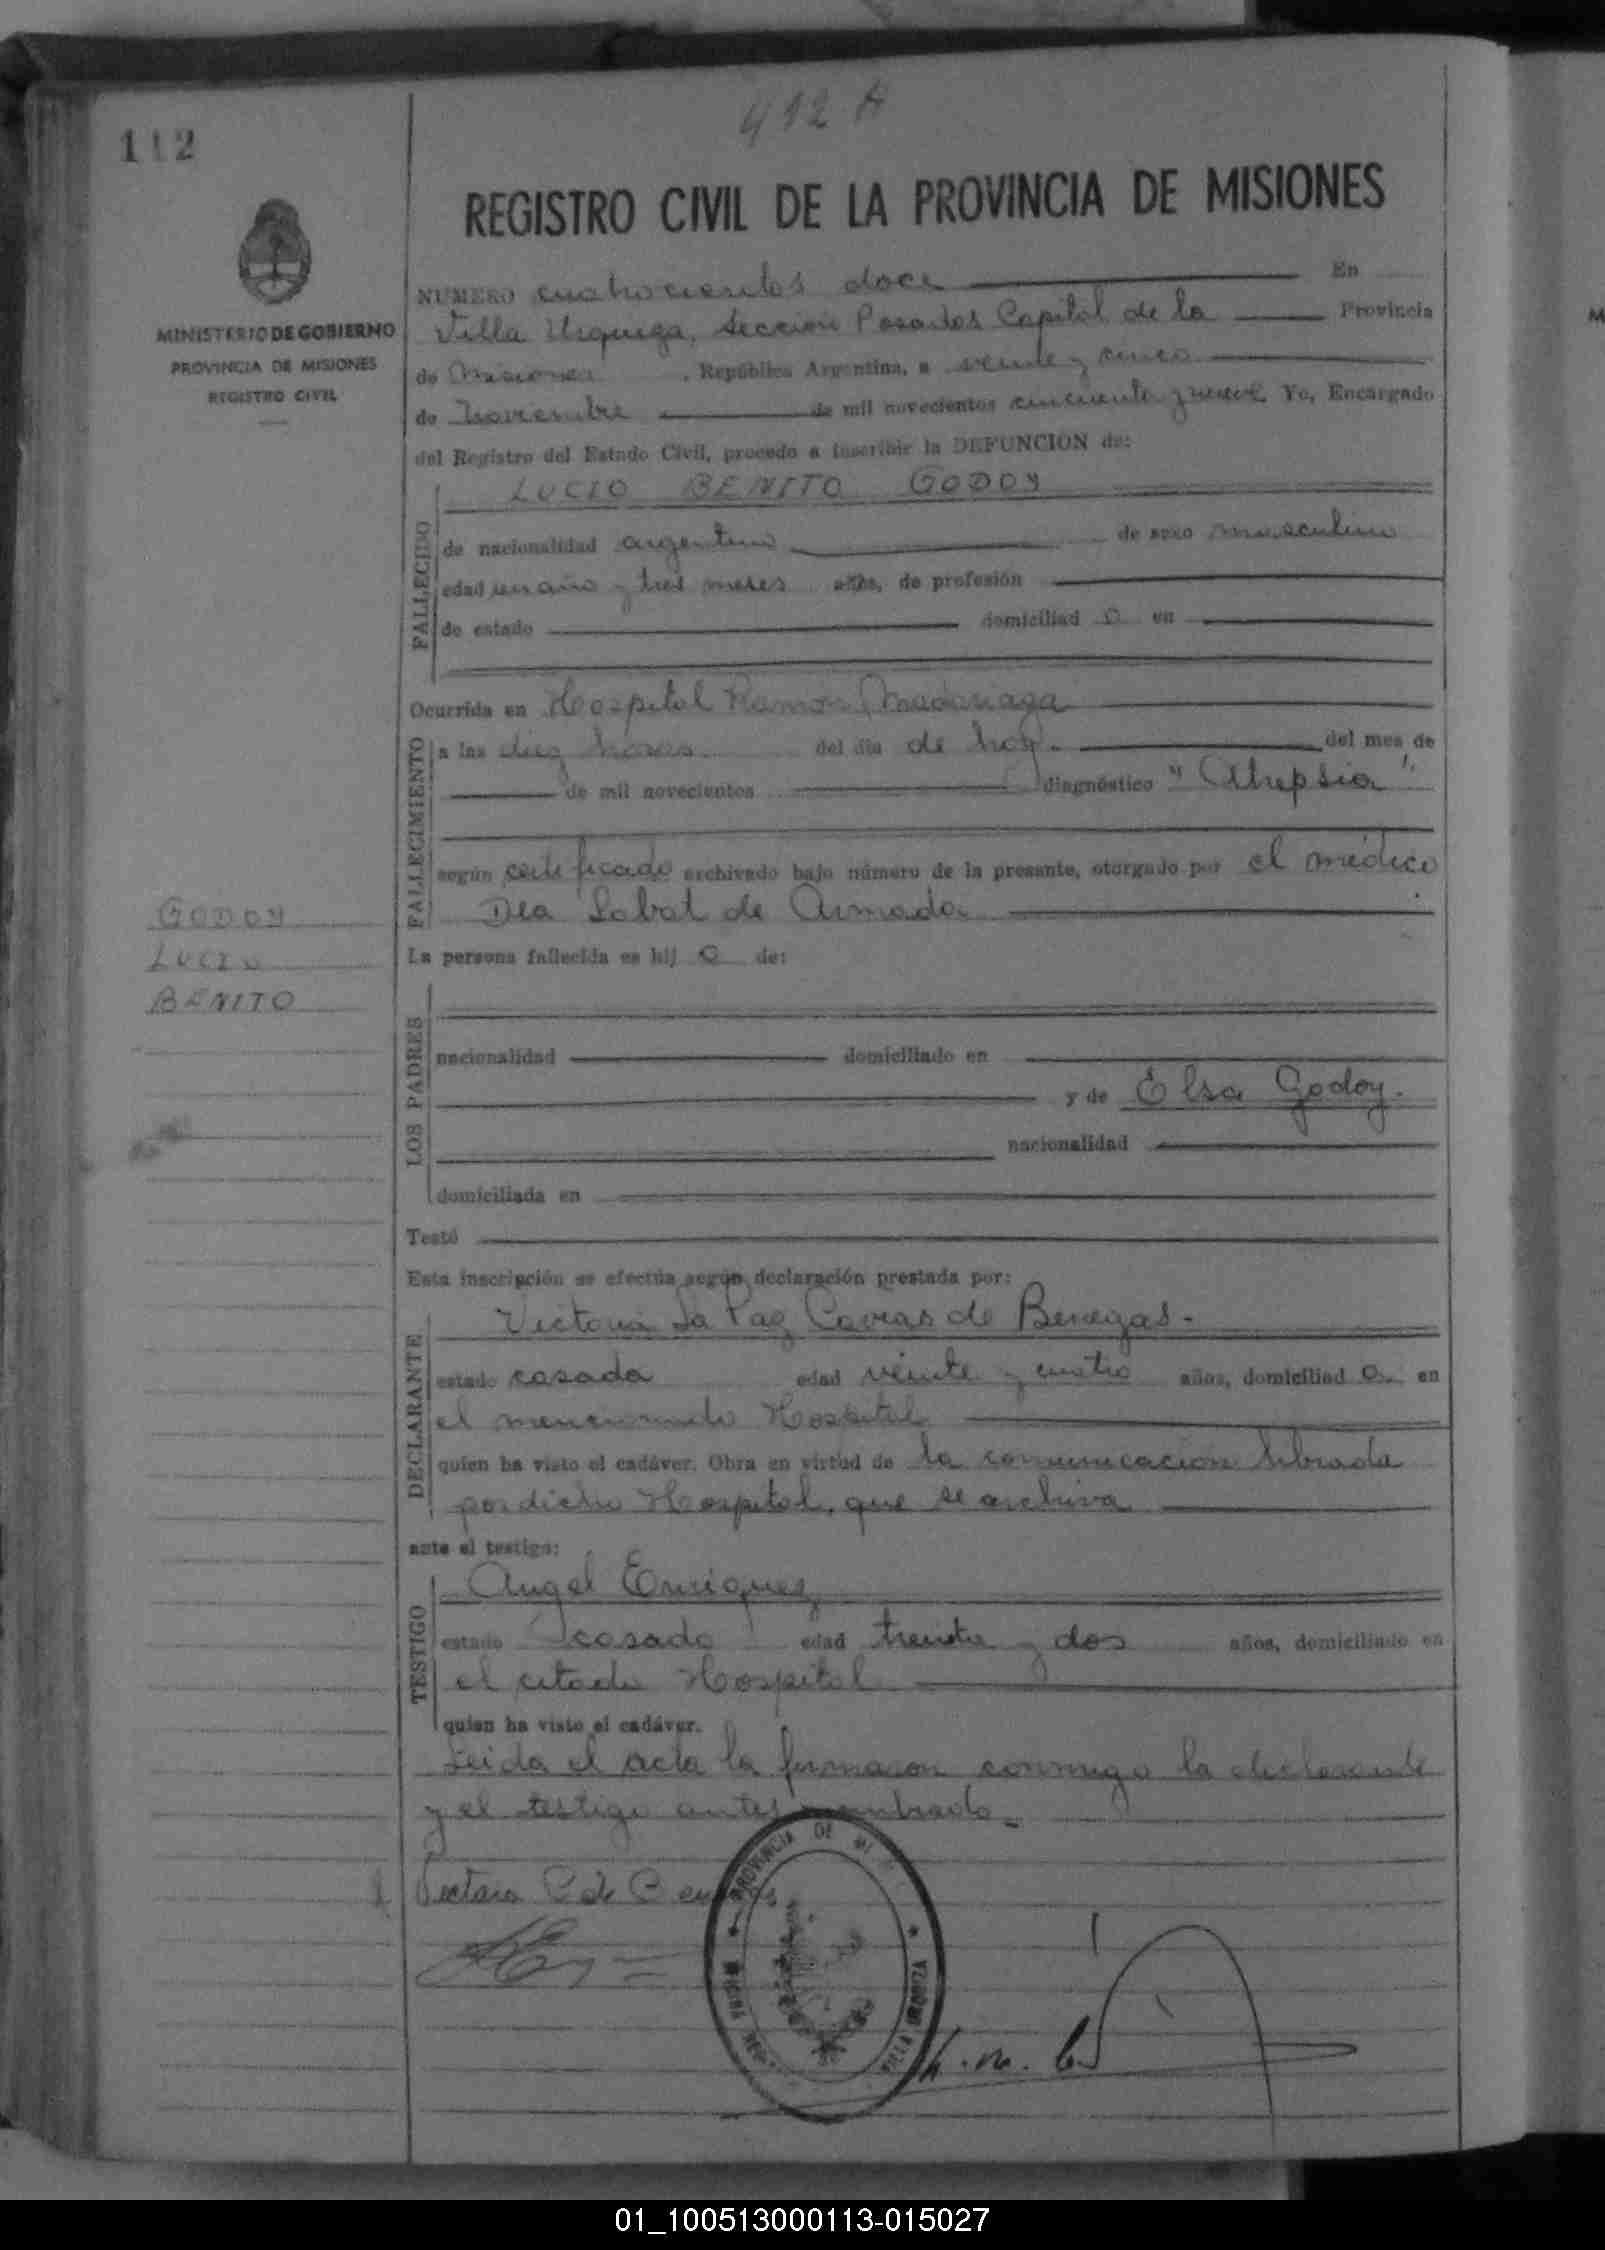 412 A
112
REGISTRO CIVIL DE LA PROVINCIA DE MISIONES
MINISTERIO DE GOBIERNO
PROVINCIA DE MISIONES
REGISTRO CIVIL
NUMERO cuatrocientos doce En
Villa Urquiza, Sección Posadas Capital de la Provincia
de Misiones, República Argentina, a veinte y cinco
de Noviembre de mil novecientos cincuenta y nueve Yo, Encargado
del Registro del Estado Civil, procedo a inscribir la DEFUNCION de:
LUCIO BENITO GODOY
FALLECIDO
de nacionalidad argentino de sexo masculino
edad un año y tres meses años, de profesión
de estado domiciliad o en
Ocurrida en Hospital Ramón Madariaga
FALLECIMIENTO
a las diez horas del día de hoy. del mes de
de mil novecientos diagnóstico "Atrepsia"
según certificado archivado bajo número de la presente, otorgado por el médico
Dra Labat de Armada
GODOY
LUCIO
BENITO
La persona fallecida es hij o de:
LOS PADRES
nacionalidad domiciliado en
y de Elsa Godoy.
nacionalidad
domiciliada en
Testó
Esta inscripción se efectúa según declaración prestada por:
Victoria La Paz de Benegas.-
DECLARANTE
estado casada edad veinte y cuatro años, domiciliad a en
el mencionado Hospital
quien ha visto el cadáver. Obra en virtud de la comunicación librada
por dicho Hospital, que se archiva
ante el testigo:
Angel Enriquez
TESTIGO
estado casado edad treinta y dos años, domiciliado en
el citado Hospital
quien ha visto el cadáver.
Leida el acta la firmaron conmigo la declarante
y el testigo antes nombrado.-
PROVINCIA DE
01_100513000113-015027